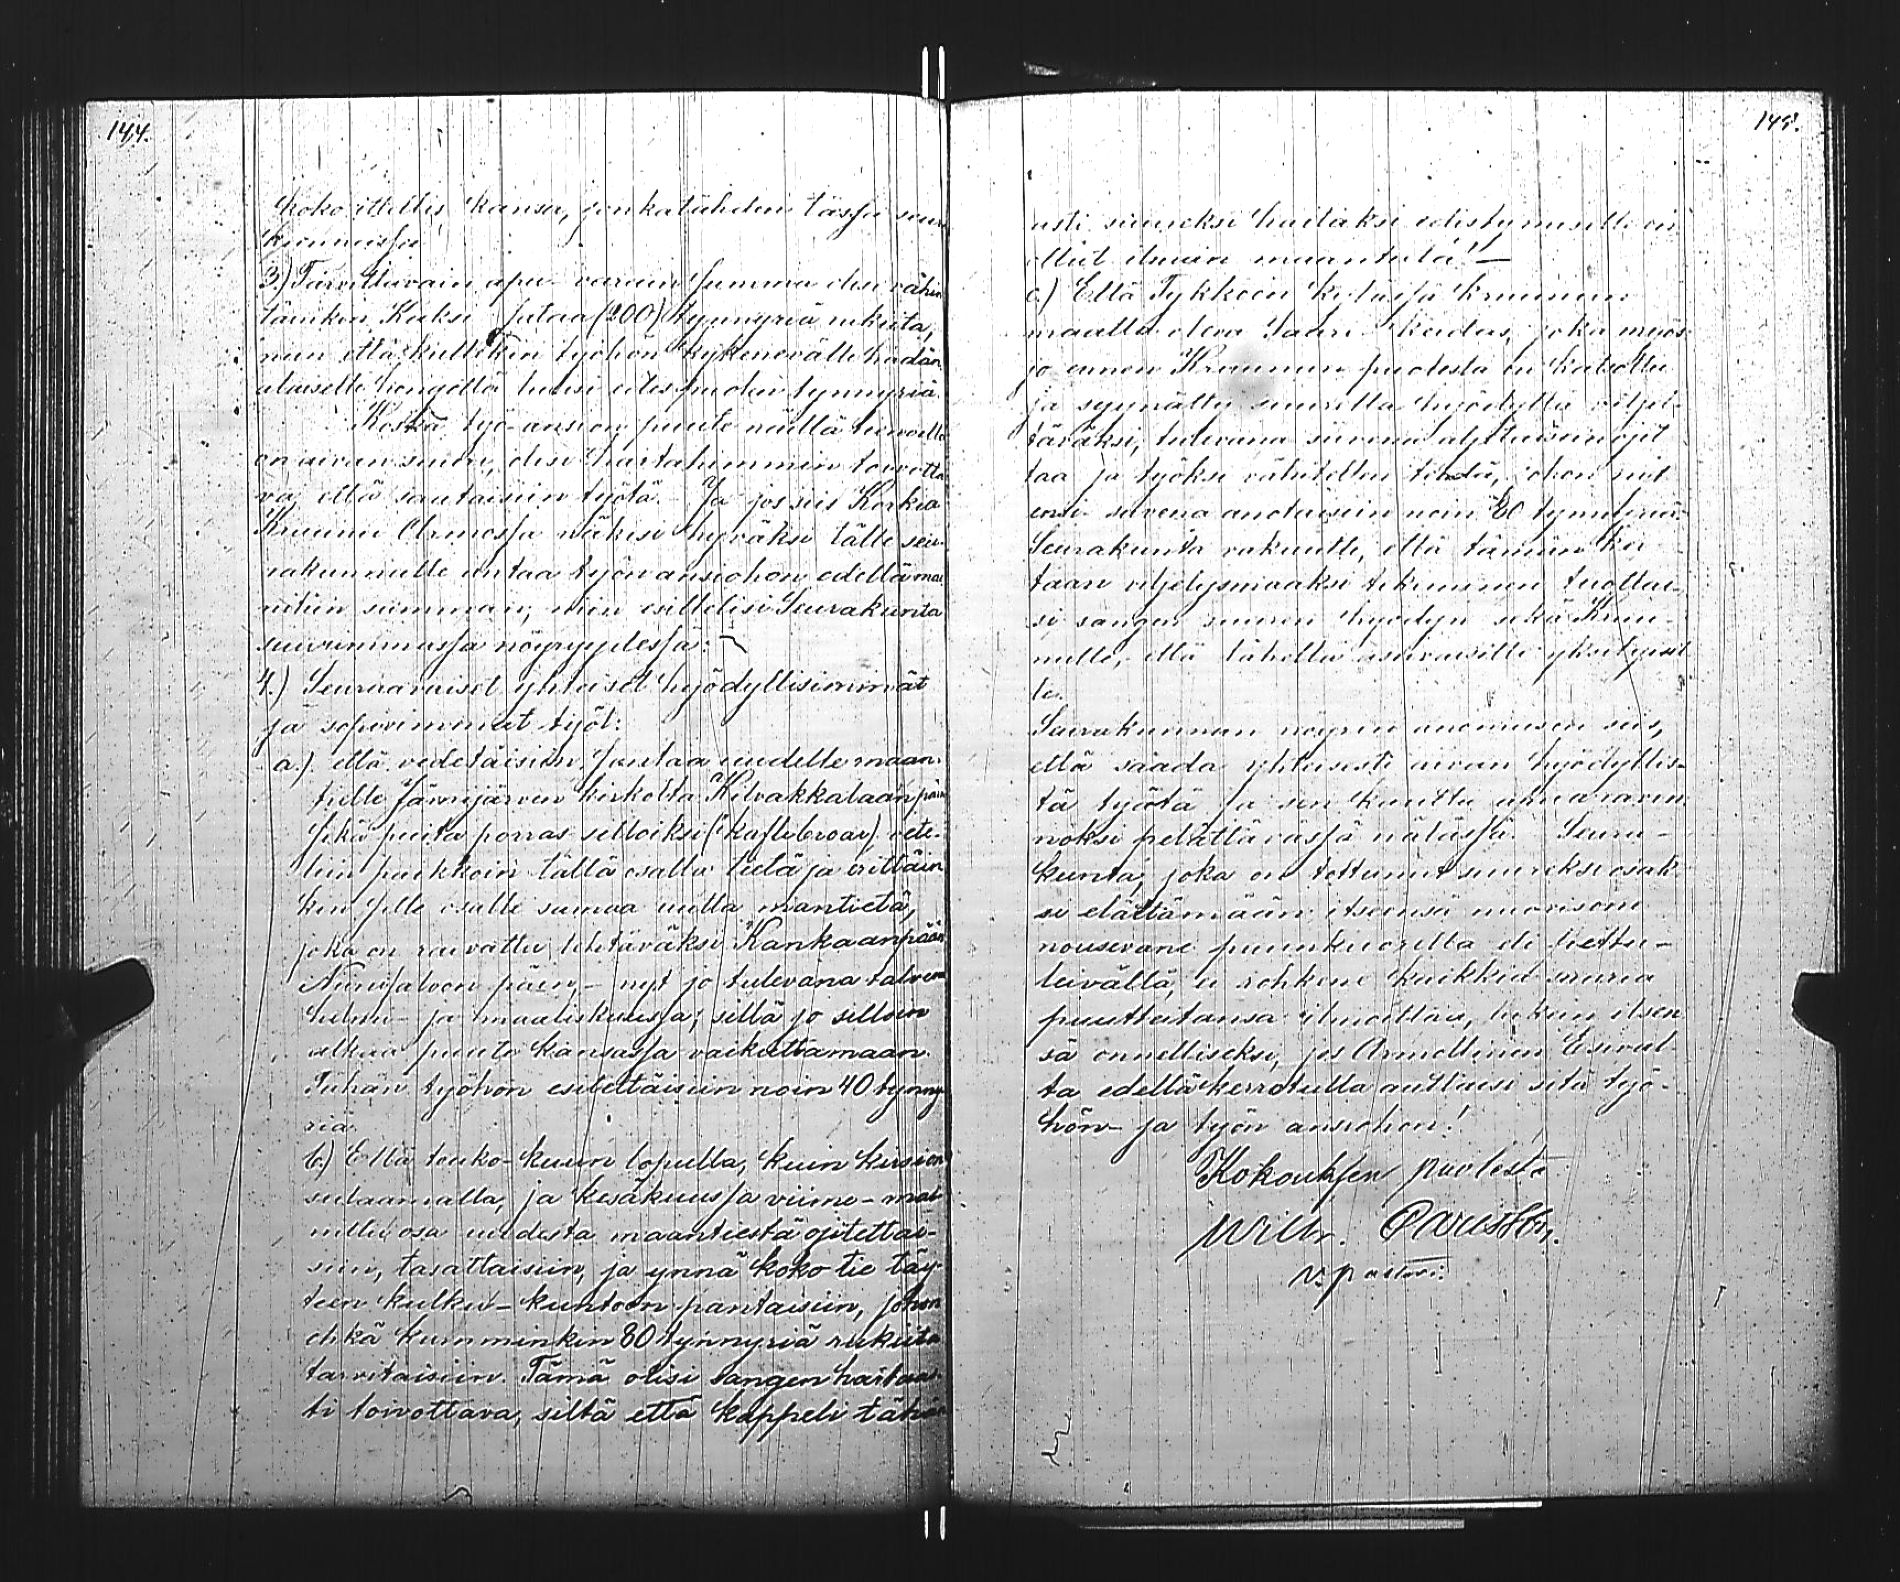 144.
koko ittellis kansa, jonkatähden tässä seura
kunnassa
3.) Tarvittavain apu-varain summa olisi vähin
täinkin Kaksi sataa (200) tynnyriä rukiita,
niin että kullekin työhön kykenevälle hädän
alaiselle hengelle tulisi edes puolen tynnyriä.
Koska työ-ansion puute näillä seuvuilla
on aivan suuri, olisi hartahimmin toivotta
va, että saataisiin työtä. - Ja jos siis Korkia
Kruunu Armossa näkisi hyväksi tälle seu-
rakunnalle antaa työn ansiohon edellämai
nitun summan, niin esittelisi Seurakunta
suurimmassa nöyryydessä:
4.) Seuraavaiset yhteiset hyödyllisimmät
ja sopivimmat työt:
a.) että vedetäisiin santaa uudelle maan-
tielle Jämijärven kirkolta Kilvakkalaan päin
sekä puita porras silloiksi (kaflebroar) vete-
liin paikkoin tällä osalla tietä ja erittäin
kin sille osalle samaa uutta mantietä,
joka on raivattu tehtäväksi Kankaanpään
Niinisaloon päin, - nyt jo tulevana talvena
helmi- ja maaliskuussa; sillä jo silloin
alkaa puute kansassa vaikuttamaan.
Tähän työhön esitettäisiin noin 40 tynny-
riä.
b.) Että touko-kuun lopulla, kuin kirsi on
sulaamalla, ja kesäkuussa viime-mai
nittu osa uudesta maantiestä ojitettai-
siin, tasattaisiin, ja ynnä koko tie täy-
teen kulku-kuntoon pantaisiin, johon
ehkä kumminkin 80 tynnyriä rukiita
tarvitaisiin. Tämä olisi sangen hartaas-
ti toivottava, siltä että kappeli tähän
145.
asti suureksi haitaksi edistymiselle on
ollut ilman maantietä! -
c.) Että Tykköön kylässä kruunun
maalla oleva Saari keidas, joka myös
jo ennen Kruunun puolesta on katsottu
ja syynätty suurella hyödyllä viljel-
täväksi, tulevana suvena aljettaisiin ojit
taa ja työksi vähitellen tehdä, johon nyt
ensi suvena anotaisiin noin 80 tynnyriä.
Seurakunta vakuutti, että tämän kei
taan viljelysmaaksi tekeminen tuottai-
si sangen suuren hyödyn sekä Kruu-
nulle, että lähellä asuvaisille yksityisil
le.
Seurakunnan nöyrin anomus on siis,
että saada yhteisesti aivan hyödyllis-
tä työtä ja sen kautta apua ravin
noksi pelättävässä nälässä. Seura-
kunta, joka on tottunut suureksi osak
si elättämään itseensä nuorisone
nousevane puunkuorilla eli pettu-
leivällä, ei rohkene kaikkia suuria
puuttutansa ilmoittaa, lukein itsen
sä onnelliseksi, jos Armollinen Esival
ta edellä kerrotulla auttaisi sitä työ-
hön- ja työn ansiohon!
Kokouksen puolesta
v. pastori.